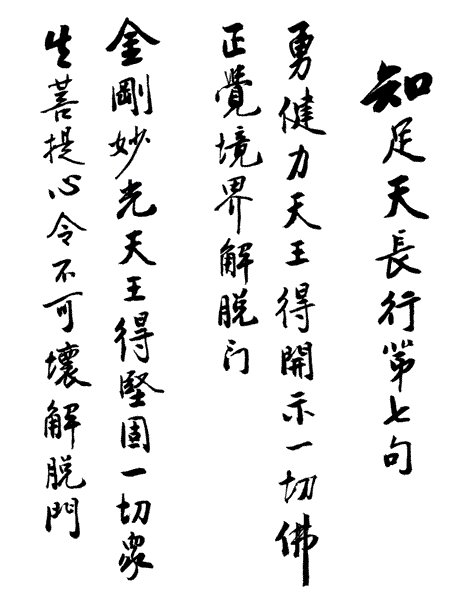 知足天長行第七句
勇健力天王得開示一切佛
正覺境界解脱门
金剛妙光天王得堅固一切眾
生菩提心令不可壞解脱門